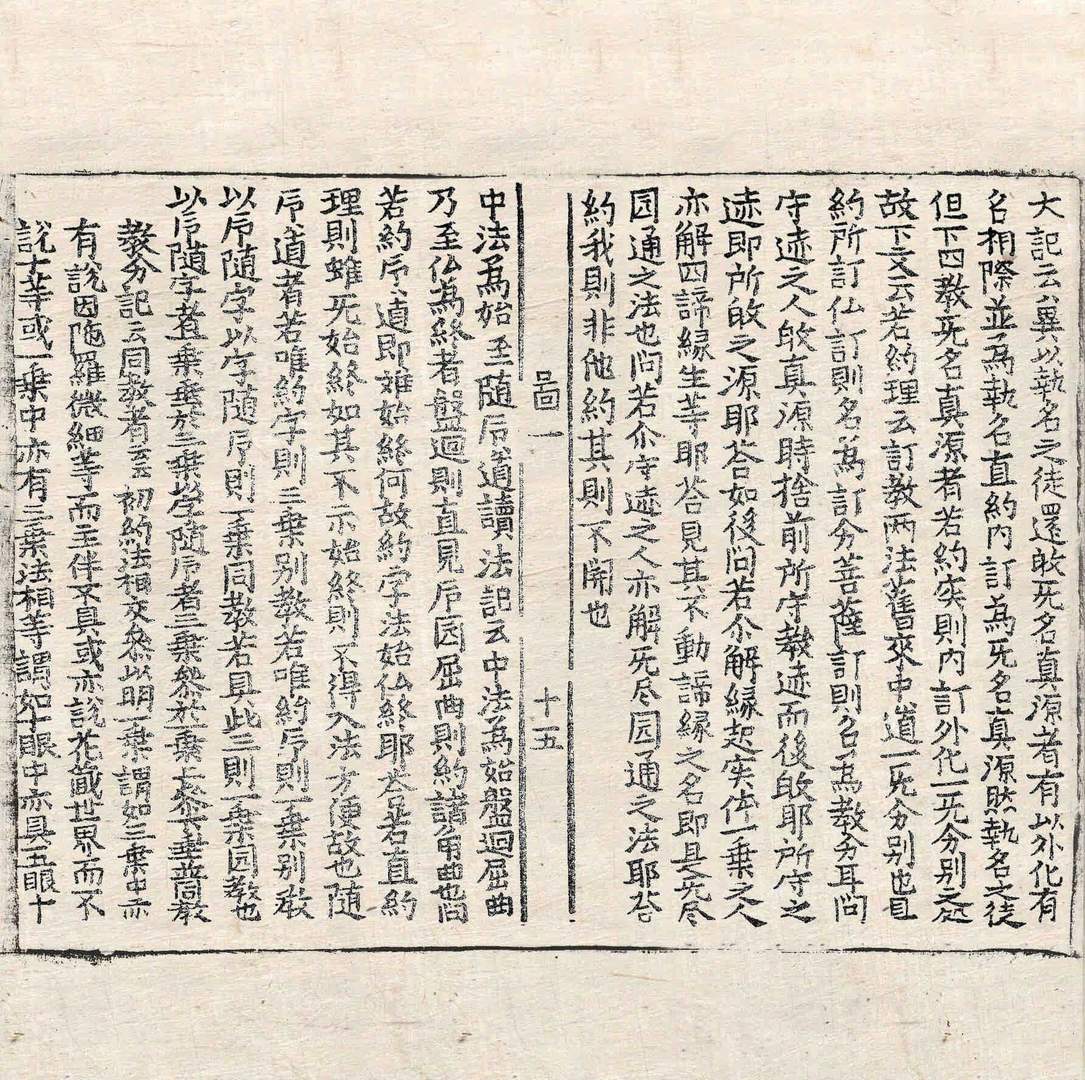 大記云冀以執名之徒還敀无名真源者有以外化有
名相際並爲執名直約內訂爲无名真源㸔執名之徒
但下四教无名真源者若約实則內訂外化一无分別之処
故下文云若約理云訂教两法舊來中道一无分別也且
約所訂仏訂則名爲訂分菩薩訂則名爲教分耳问
守迹之人敀真源時捨前所守教迹而後敀耶所守之
迹即所敀之源耶荅如後问若尒解縁起实体一乗之人
亦解四諦縁生䓁耶荅見其不動諦縁之名即具无尽
园通之法也问若尒守迹之人亦解无尽园通之法耶荅
約我則非他約其則不開也
啚一 十五
中法爲始至随㐆道讀法記云中法爲始盤迴屈曲
乃至仏爲終者盤迴則直見㐆园屈曲則約諸角曲也问
若約㐆道即雖始終何故約字法始仏終耶荅若直約
理則雖无始終如其不示始終則不得入法方便故也随
㐆道者若唯約字則三乗別教若唯約㐆則一乗別教
以㐆随字以字随㐆則一乗同教若具此三則一乗园教也
以㐆随字者一乗垂於三乗以字随㐆者三乗叅於一乗上叅下垂並同教
教分記云同教者云云初約法相交叅以明一乗謂如三乗中亦
有說因陁羅微細䓁而主伴不具或亦說花蔵世界而不
說十䓁或一乗中亦有三乗法相等謂如十眼中亦具五眼十